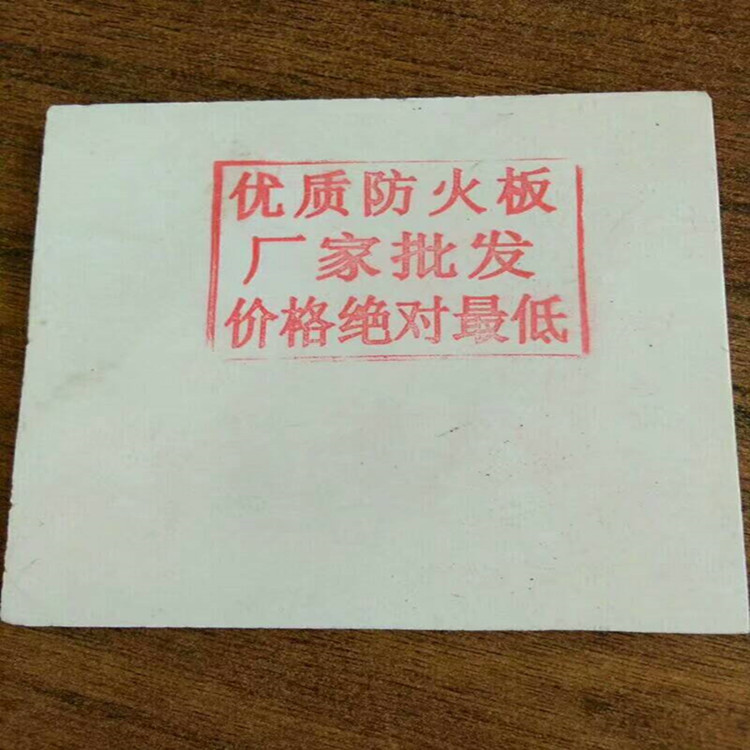 优质防火板
厂家批发
价格绝对最低